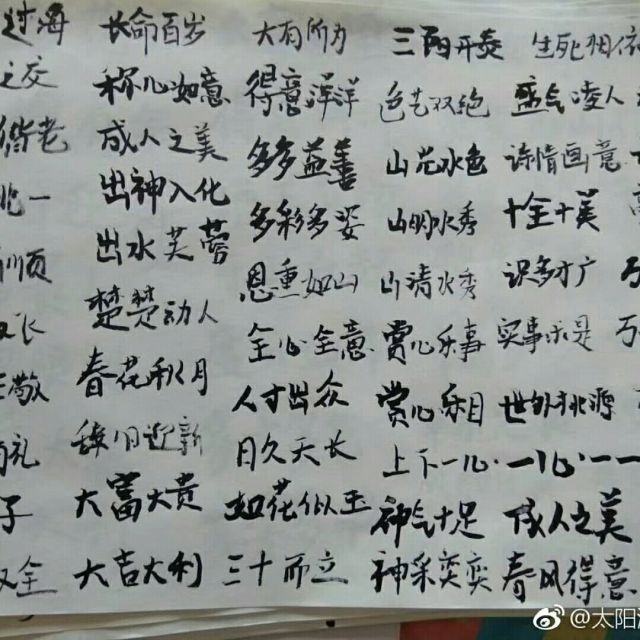 过海 长命百岁 大有所为 三阳开泰 生死相依
之交 称心如意 得意洋洋 色艺双绝 盛气凌人
偕老 成人之美 多多益善 山光水色 诗情画意
一 出神入化 多彩多姿 山明水秀 十全十美
顺 出水芙蓉 恩重如山 山清水秀 识多才广
长 楚楚动人 全心全意 赏心乐事 实事求是
敬 春花秋月 人才出众 赏心乐目 世外桃源
礼 辞旧迎新 日久天长 上下一心 一心一一
子 大富大贵 如花似玉 神气十足 成人之美
双全 大吉大利 三十而立 神采奕奕 春风得意
@太阳